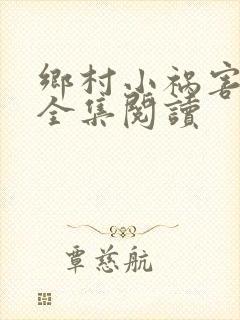 鄉村小禍害
全集閱讀
覃慈航